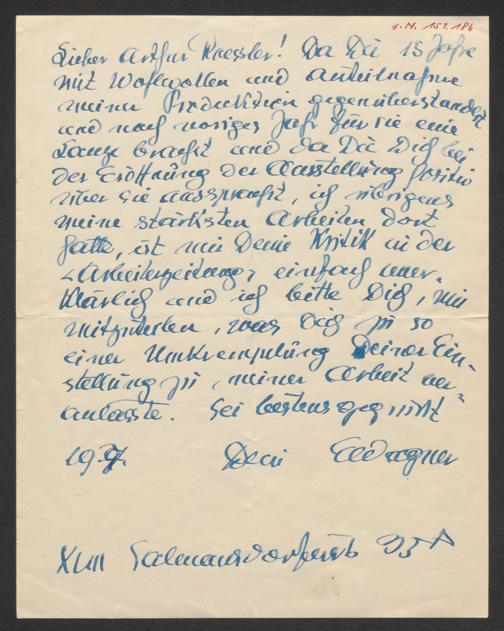 I.N. 151.186
Lieber Arthur Roessler! Da Du 15 Jahre
mit Wohlwollen und Anteilnahme
meiner Produktion gegenüberstandest
und noch voriges Jahr für sie eine
Lanze brachst und da Du Dich bei
der Eröffnung der Ausstellung positiv
über sie aussprachst, ich übrigens
meine stärksten Arbeiten dort
hatte, ist mir Deine Kritik in der
"Arbeiterzeitung" einfach uner-
klärlich und ich bitte Dich, mir
mitzuteilen, was Dich zu so
einer Umkrempelung Deiner Ein-
stellung zu meiner Arbeit ver-
anlasste. Sei bestens gegrüßt
Dein Wagner
XVIII 35A